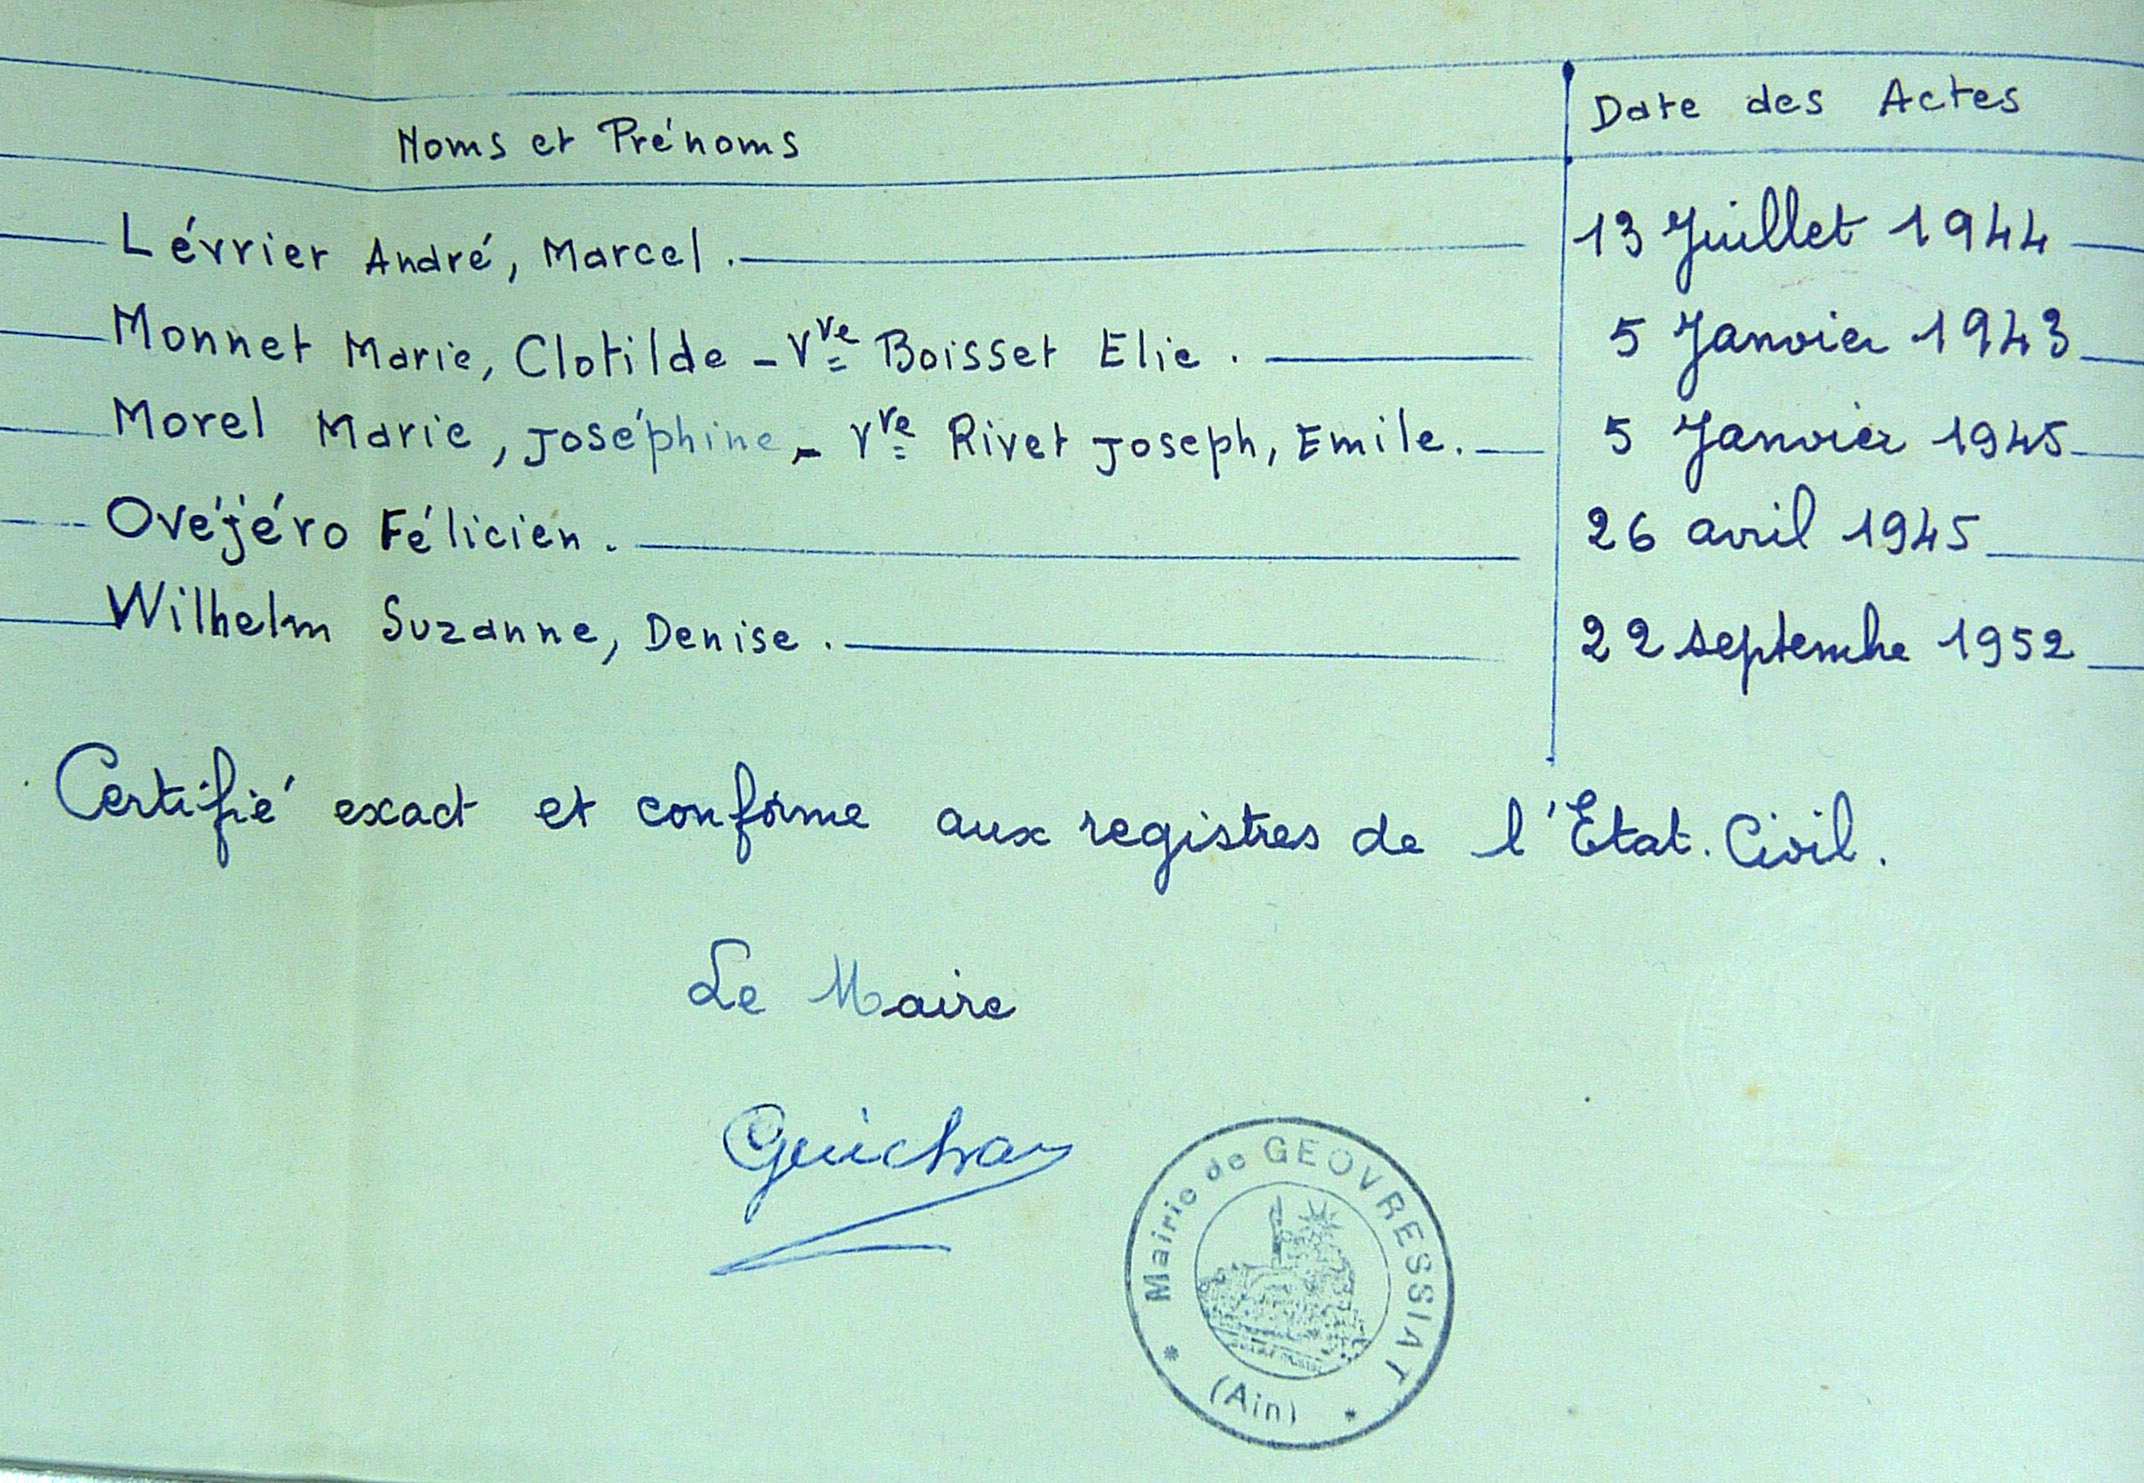 Noms et Prénoms
Date des Actes
Lévrier André, Marcel.
13 Juillet 1944
Monnet Marie, Clotilde - Vve Boisset Elie.
5 Janvier 1943
Morel Marie, Joséphine - Vve Rivet Joseph, Emile.
5 Janvier 1945
Ovéjéro Félicien.
26 avril 1945
Wilhelm Suzanne, Denise.
22 septembre 1952
Certifié exact et conforme aux registres de l'Etat. Civil.
Le Maire
Mairie de GEOVRESSIAT
(Ain)